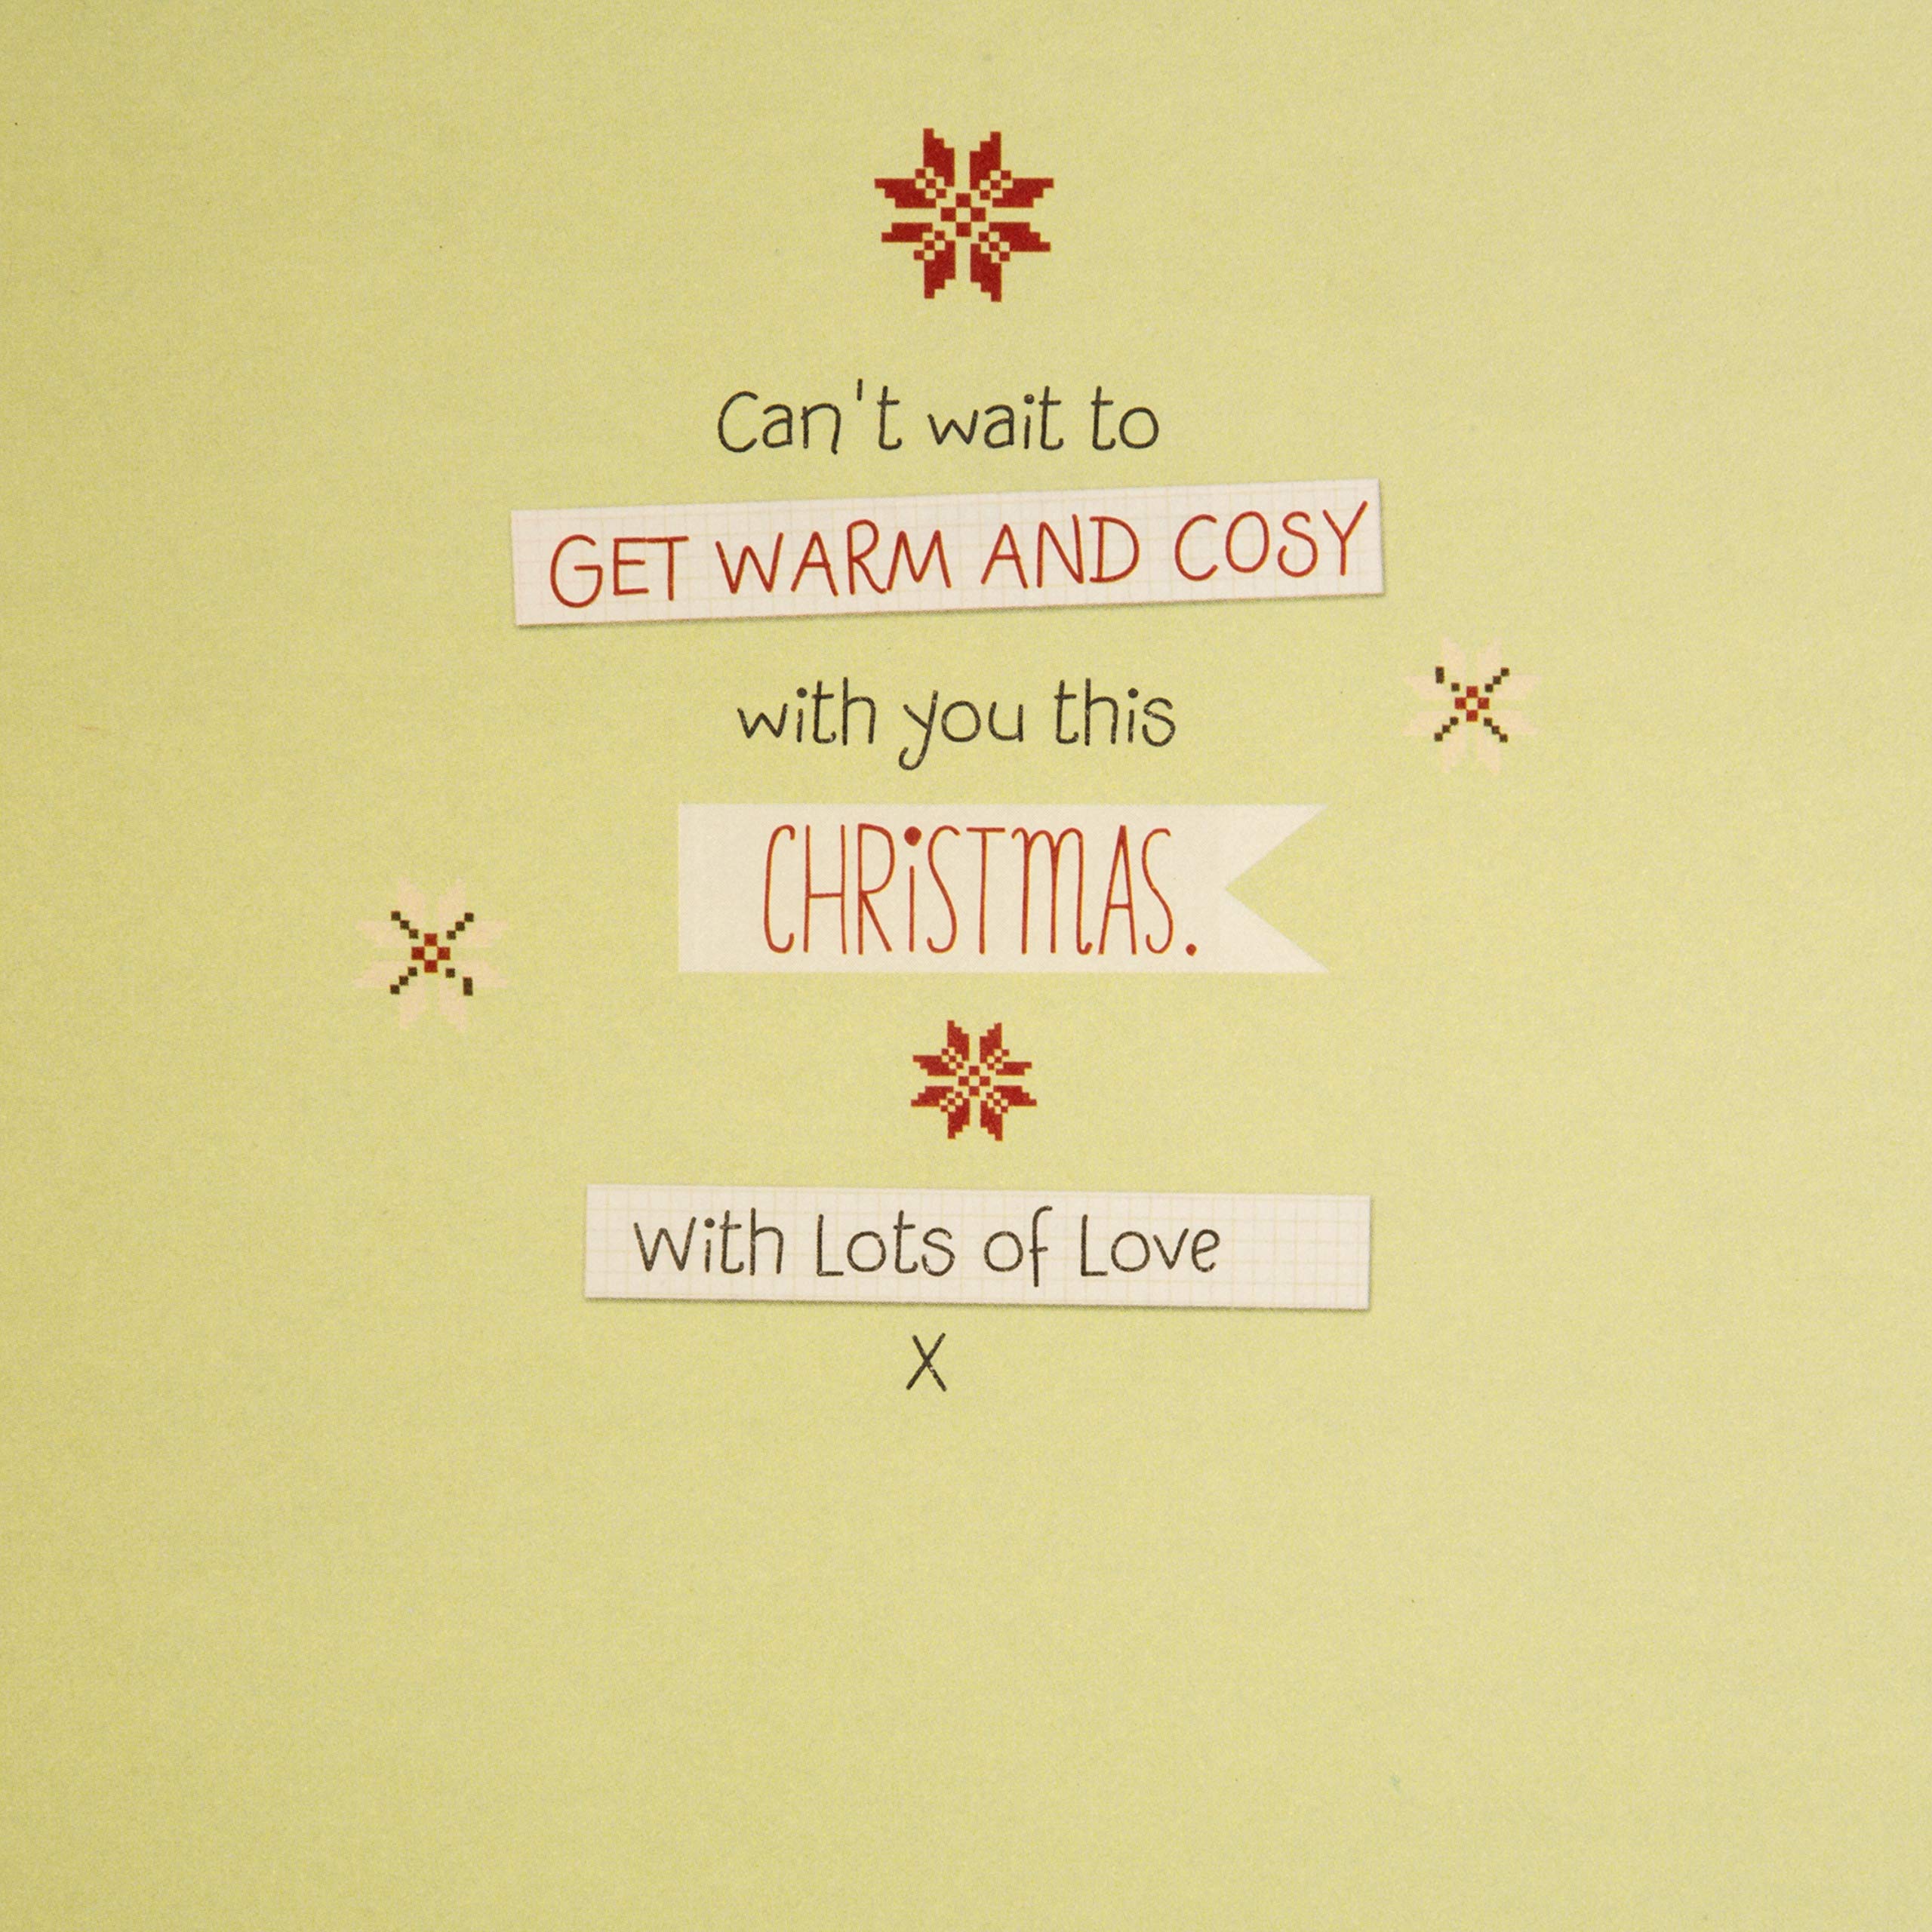 Can't wait to
GET WARM AND COSY
with you this
CHRiSTMAS.
With Lots of Love
X